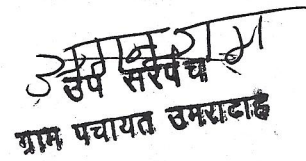 राम
उप सरपंच
ग्राम पचायत उमराटाह